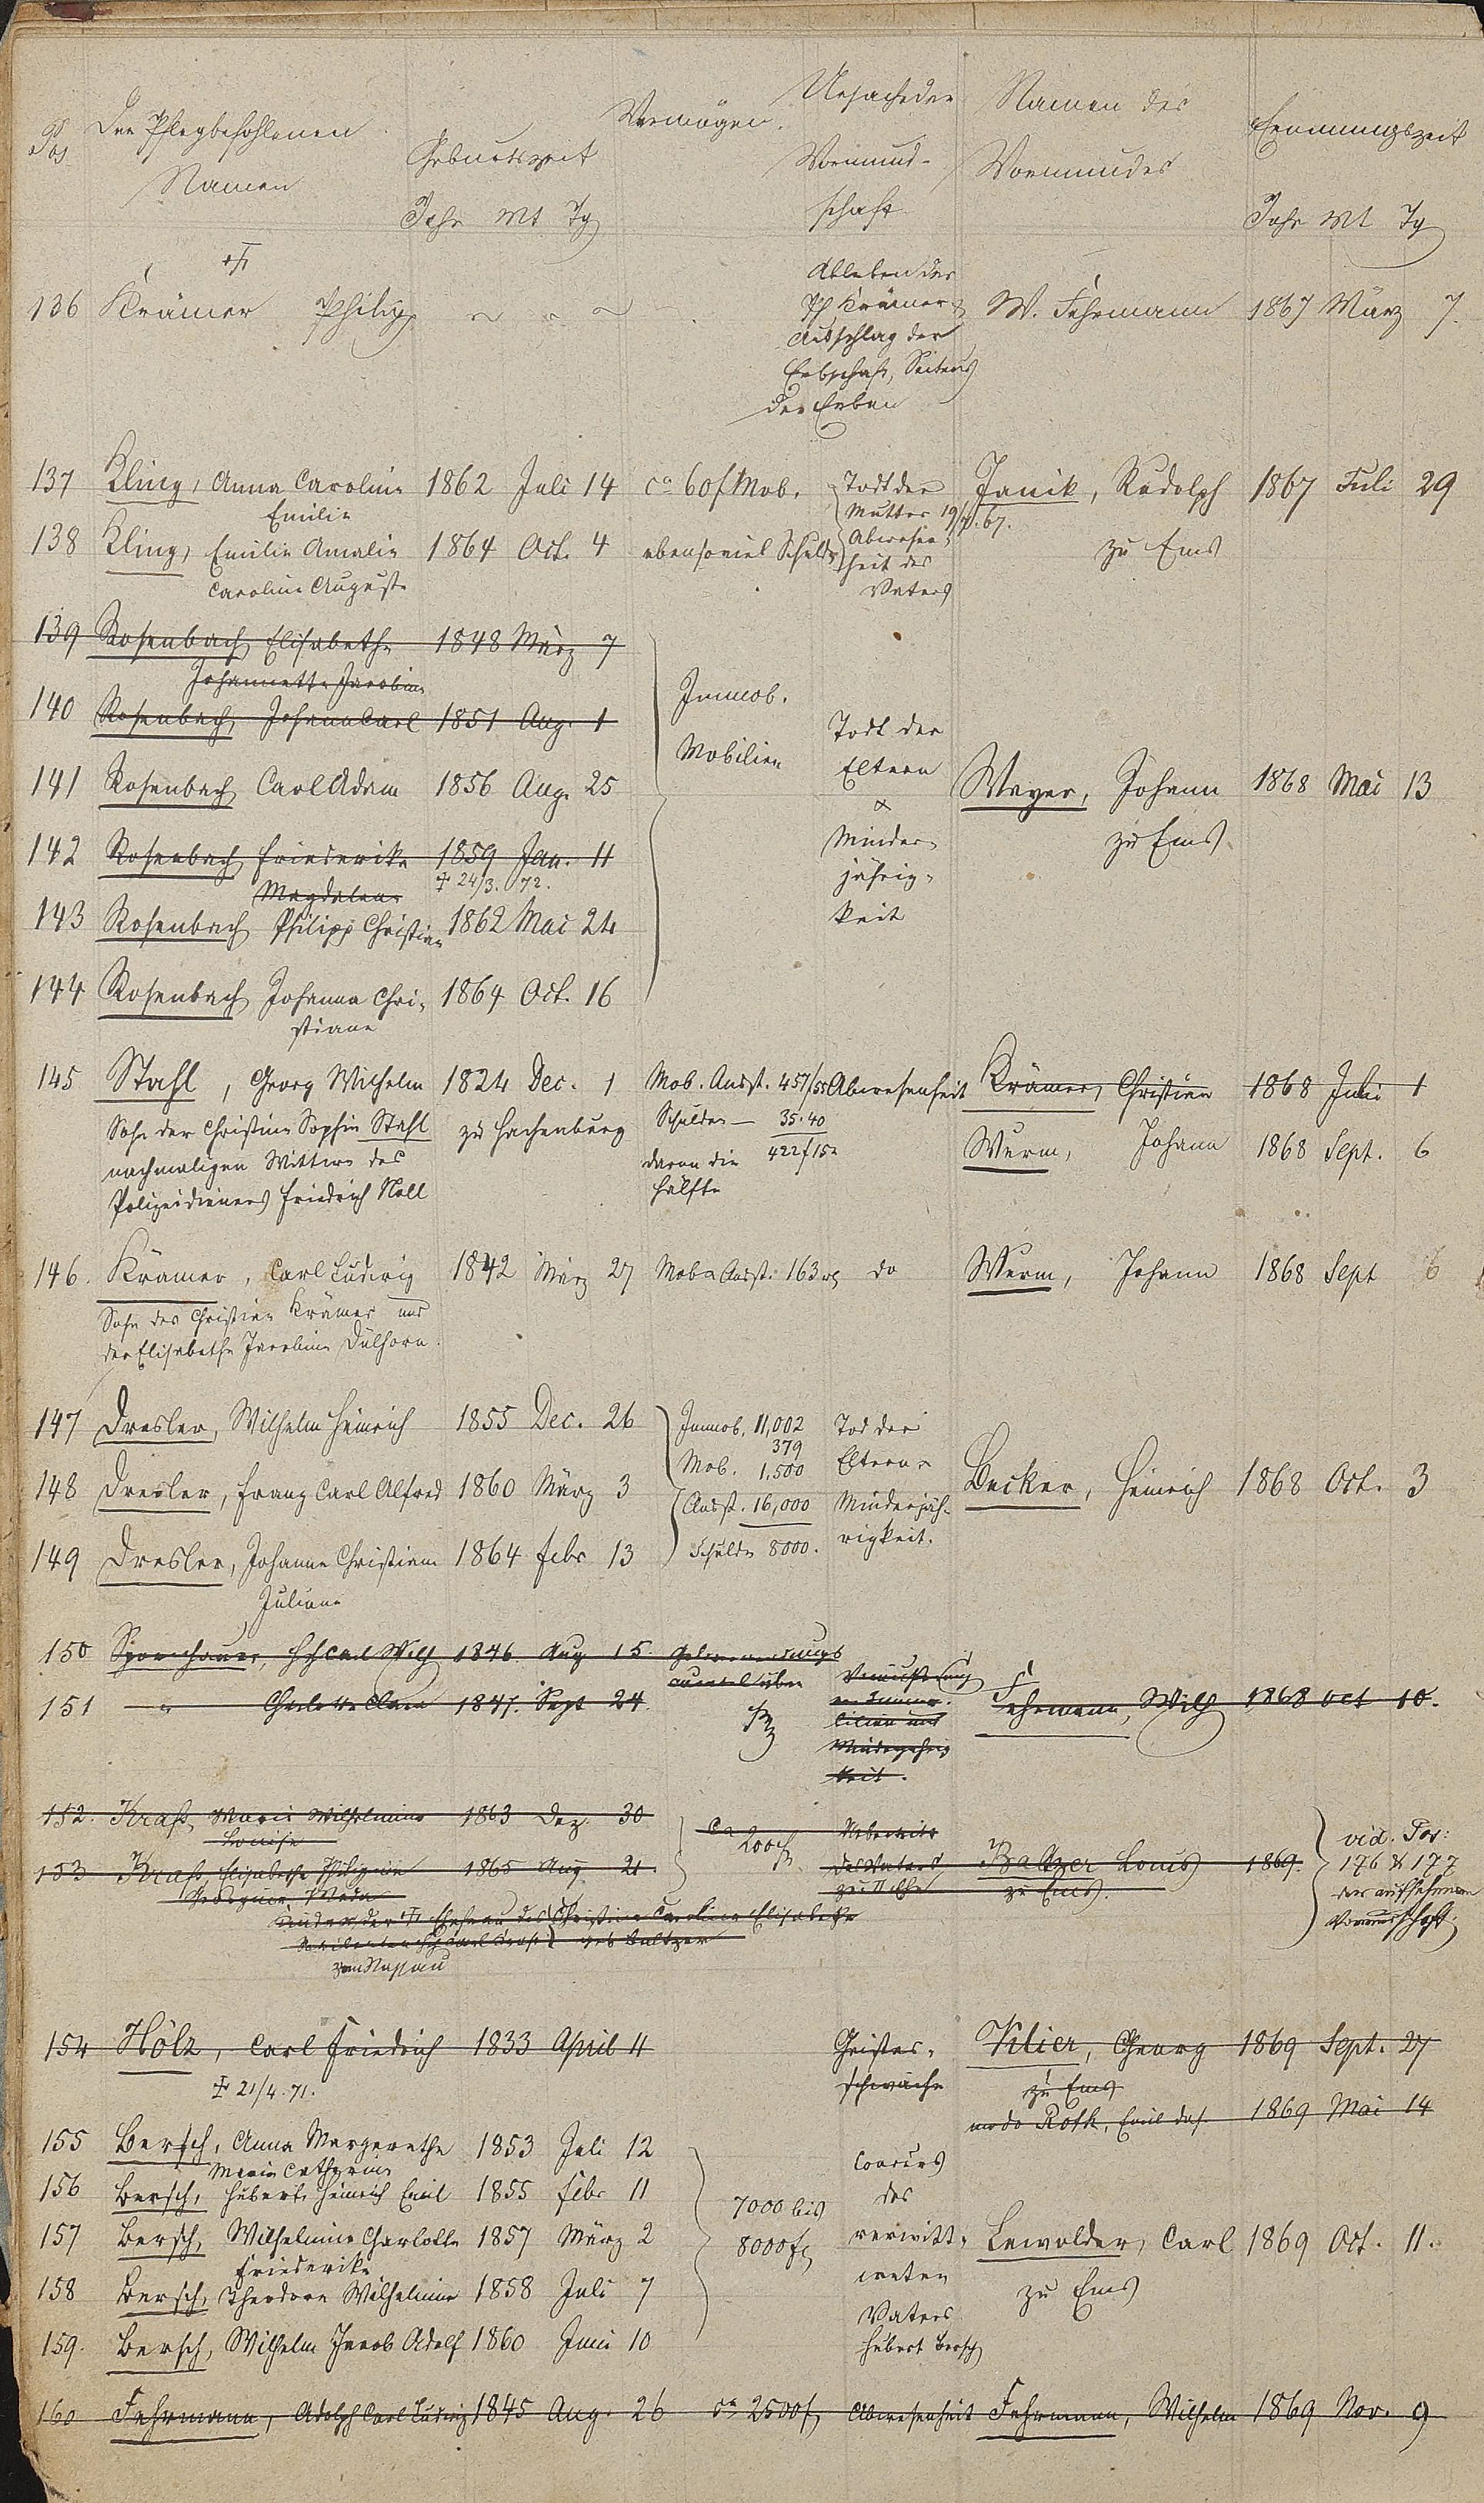 Pos Der Pflegbefohlenen Vermögen. Ursache der Namen des Ernennungszeit
Namen Geburtszeit Vormund- Vormundes
Jahr Mt Tg schaft Jahr Mt Tg
Ableben des
136 Krämer Philipp Ph. Krämer W. Fehrmann 1867 März 7.
Ausschlag der
Erbschaft, Seitens
der Erben
137 Kling, Anna Caroline 1862 Juli 14 ca 60 f Mob. Todt der Janik, Rudolph 1867 Juli 29
Emilie Mutter 67.
138 Kling, Emilie Amalie 1864 Oct. 4 ebensoviel Schuld Abwesen- zu Ems
Caroline Auguste heit des
Vaters
139 Rosenbach Elisabethe 1848 März 7
Johannette Jacobine
140 Rosenbach, Johann Carl 1851 Aug. 1 Immob. Todt der
Mobilien Eltern
141 Rosenbach Carl Adam 1856 Aug. 25 & Weyer, Johann 1868 Mai 13
142 Rosenbach Friederike 1859 Jan. 11 Minder- zu Ems
Magdalene ☩ 24/3. 72. jährig-
143 Rosenbach Philipp Christian 1862 Mai 24 keit
144 Rosenbach Johanna Chri- 1864 Oct. 16
stiane
145 Stahl, Georg Wilhelm 1824 Dec. 1 Mob. Ausst. 457/55 Abwesenheit Krämer, Christian 1868 Juli 1
Sohn der Christine Sophie Stahl zu Hachenburg Schulden — 35.40
nachmaligen Wittwe des davon die 422 f 15 Wurm, Johann 1868 Sept. 6
Polizeidieners Friedrich Noll Hälfte
146. Krämer, Carl Ludwig 1842 März 27 Mob & Ausst. 163 do Wurm, Johann 1868 Sept 6
Sohn des Christian Krämer und
der Elisabethe Jacobine Dülhorn.
147 Dresler, Wilhelm Heinrich 1855 Dec. 26 Immob. 11,002 Tod der
379
148 Dresler, Franz Carl Alfred 1860 März 3 Mob. 1,500 Eltern Becker, Heinrich 1868 Oct. 3
Ausst. 16,000 Minderjäh-
149 Dresler, Johanna Christiane 1864 Febr 13 Schuld 8000. rigkeit.
Juliane
150 Spornhauer, Carl Wilh 1846 Aug 15.
151 " Charlotte Clara 1847. Sept 24. Fehrmann, Wilh 1868 Oct 10.
und
Minderjährig
keit.
152. Kraß, Marie Wilhelmine 1863 Dez. 30 Ca
Louise 200 f vid. Pos:
153 Kraß, Elisabethe Philippine 1865 Aug 21. des Vaters Baltzer Louis 1869. 176 & 177
zu Ems.
Kinder der ☩ Ehefrau des Christine Caroline Elisabethe Vormundschaft.
Carl Kraß geb Baltzer
zu Nassau
154 Hölz, Carl Friedrich 1833 April 11 Geistes- Vilier, Georg 1869 Sept. 27
☩ 21/4. 71. schwäche zu Ems
modo Roth, Emil das. 1869 Mai 14
155 Bersch, Anna Margarethe 1853 Juli 12 Concurs
Marie Catharine
156 Bersch, Hubert Heinrich Emil 1855 Febr 11 7000 bis des
157 Bersch, Wilhelmine Charlotte 1857 März 2 8000 f verwitt- Lewalder, Carl 1869 Oct. 11.
Friederike weten
158 Bersch, Theodore Wilhelmine 1858 Juli 7 Vaters zu Ems
159. Bersch, Wilhelm Jacob Adolf 1860 Juni 10 Hubert Bersch
160 Fehrmann, Adolph Carl Ludwig 1845 Aug. 26 ca 2500 f Abwesenheit Fehrmann, Wilhelm 1869 Nov. 9